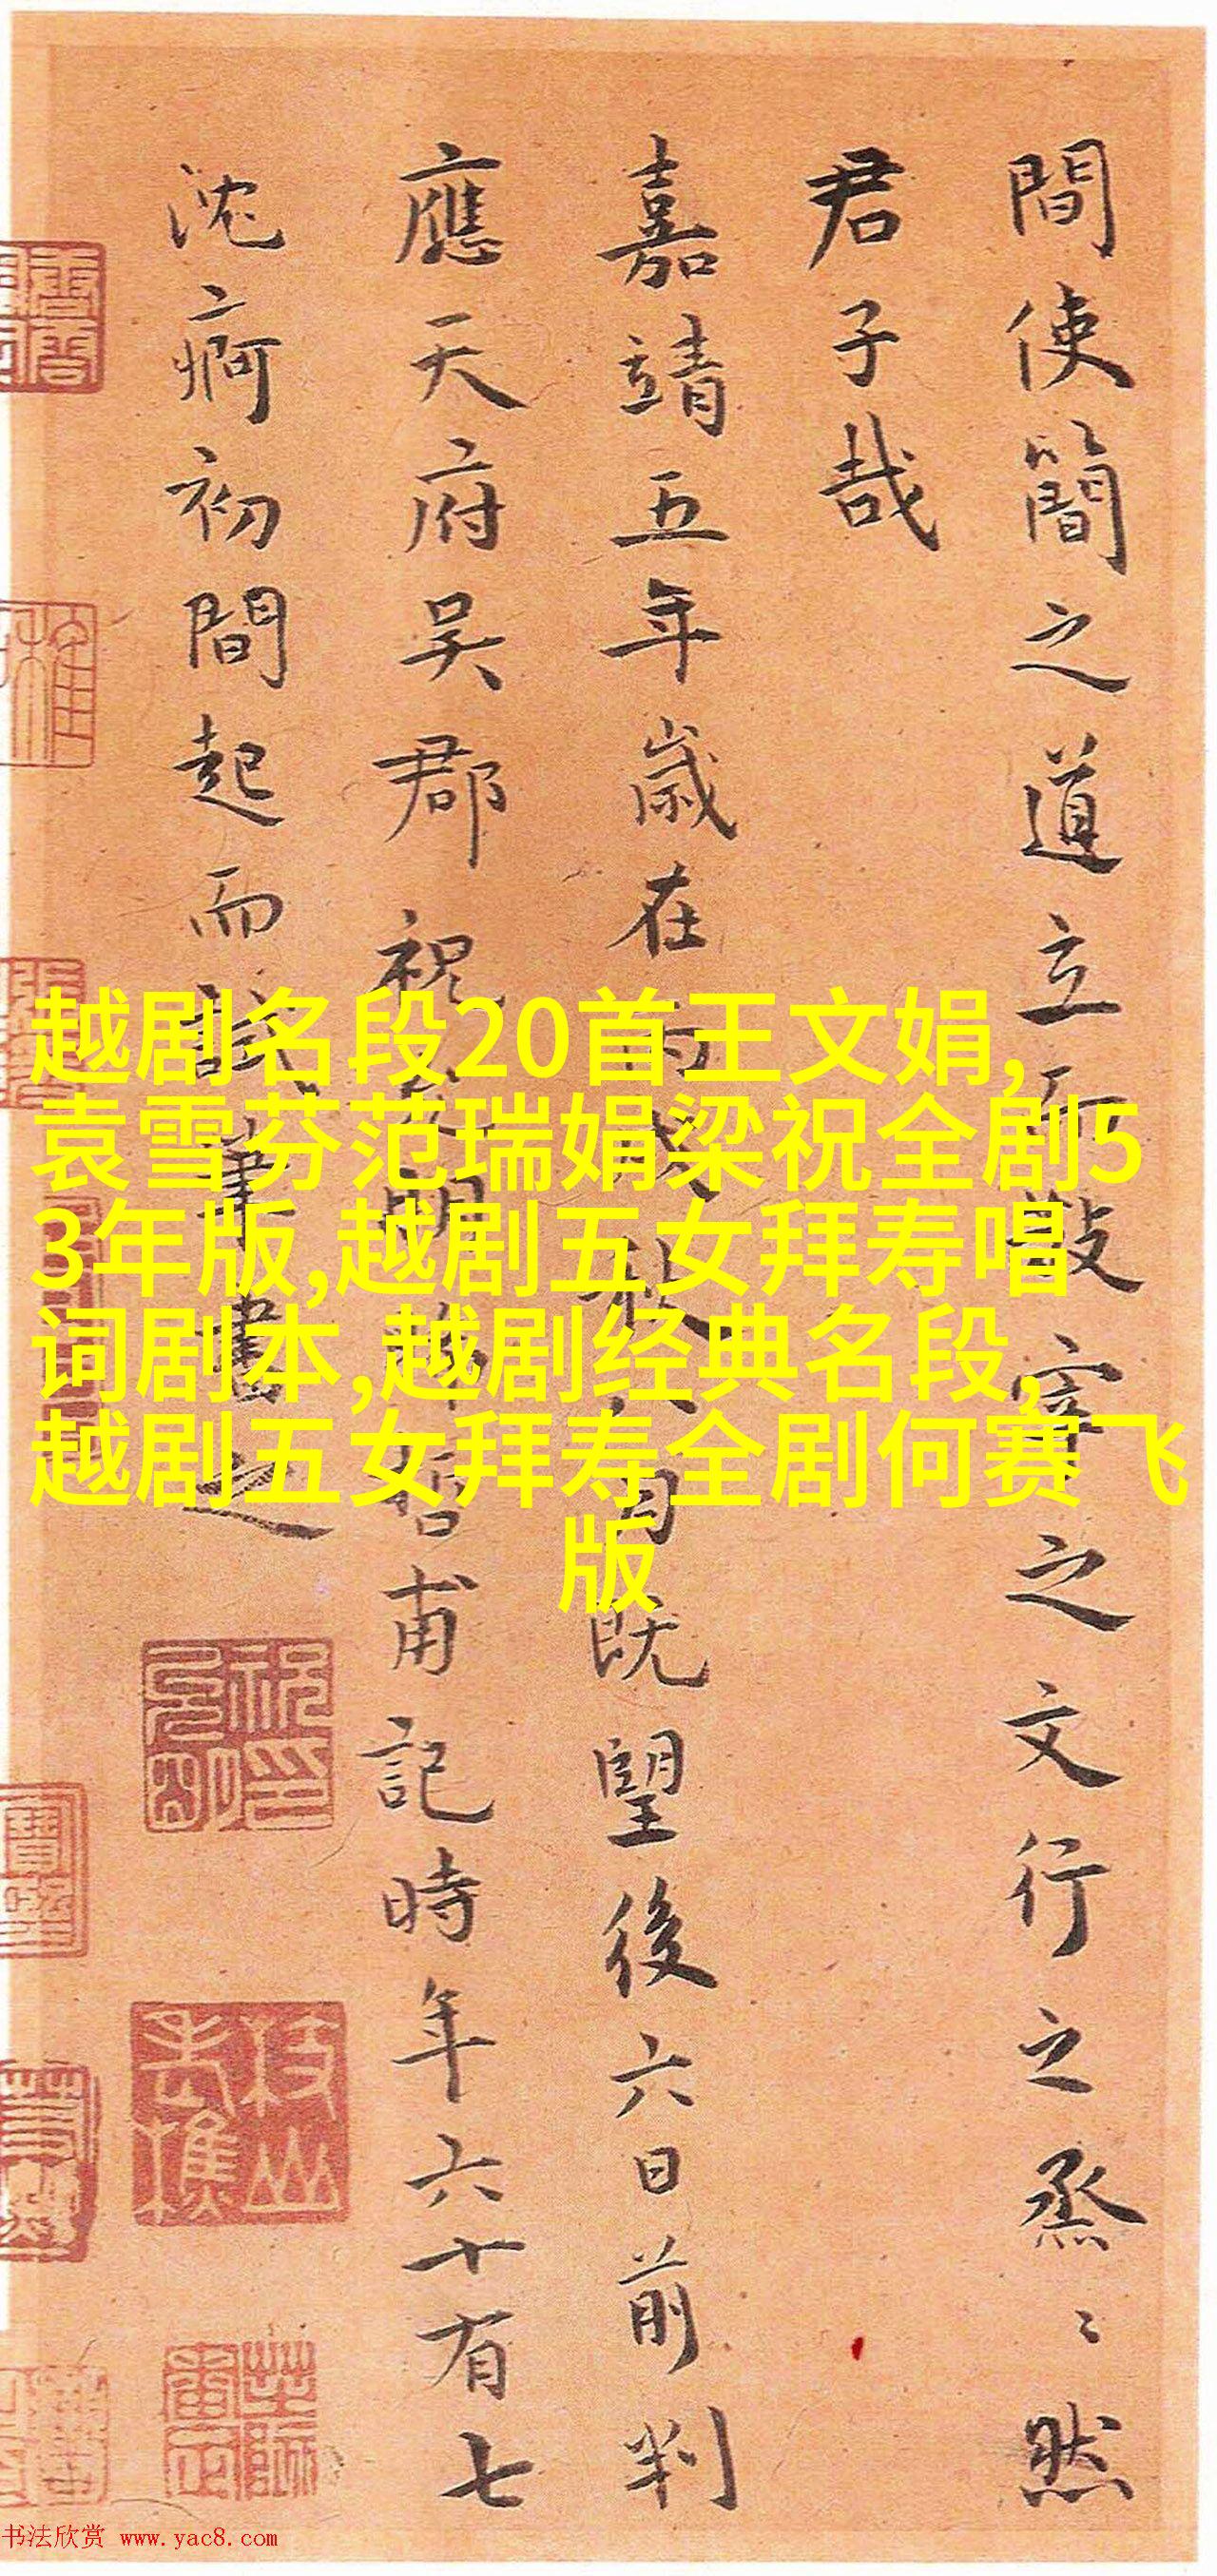 間使簡之道立而敲穽之文行之烝〻然
君子哉
嘉靖五年歲在丙戌秋八月既望後六日前判
應天府吴郡祝允明希哲甫記時年六十有七
沈痾初間起而試筆書之
越剧名段20首王文娟,
袁雪芬范瑞娟梁祝全剧5
3年版,越剧五女拜寿唱
词剧本,越剧经典名段,
越剧五女拜寿全剧何赛飞
版
书法欣赏 www.yac8.com